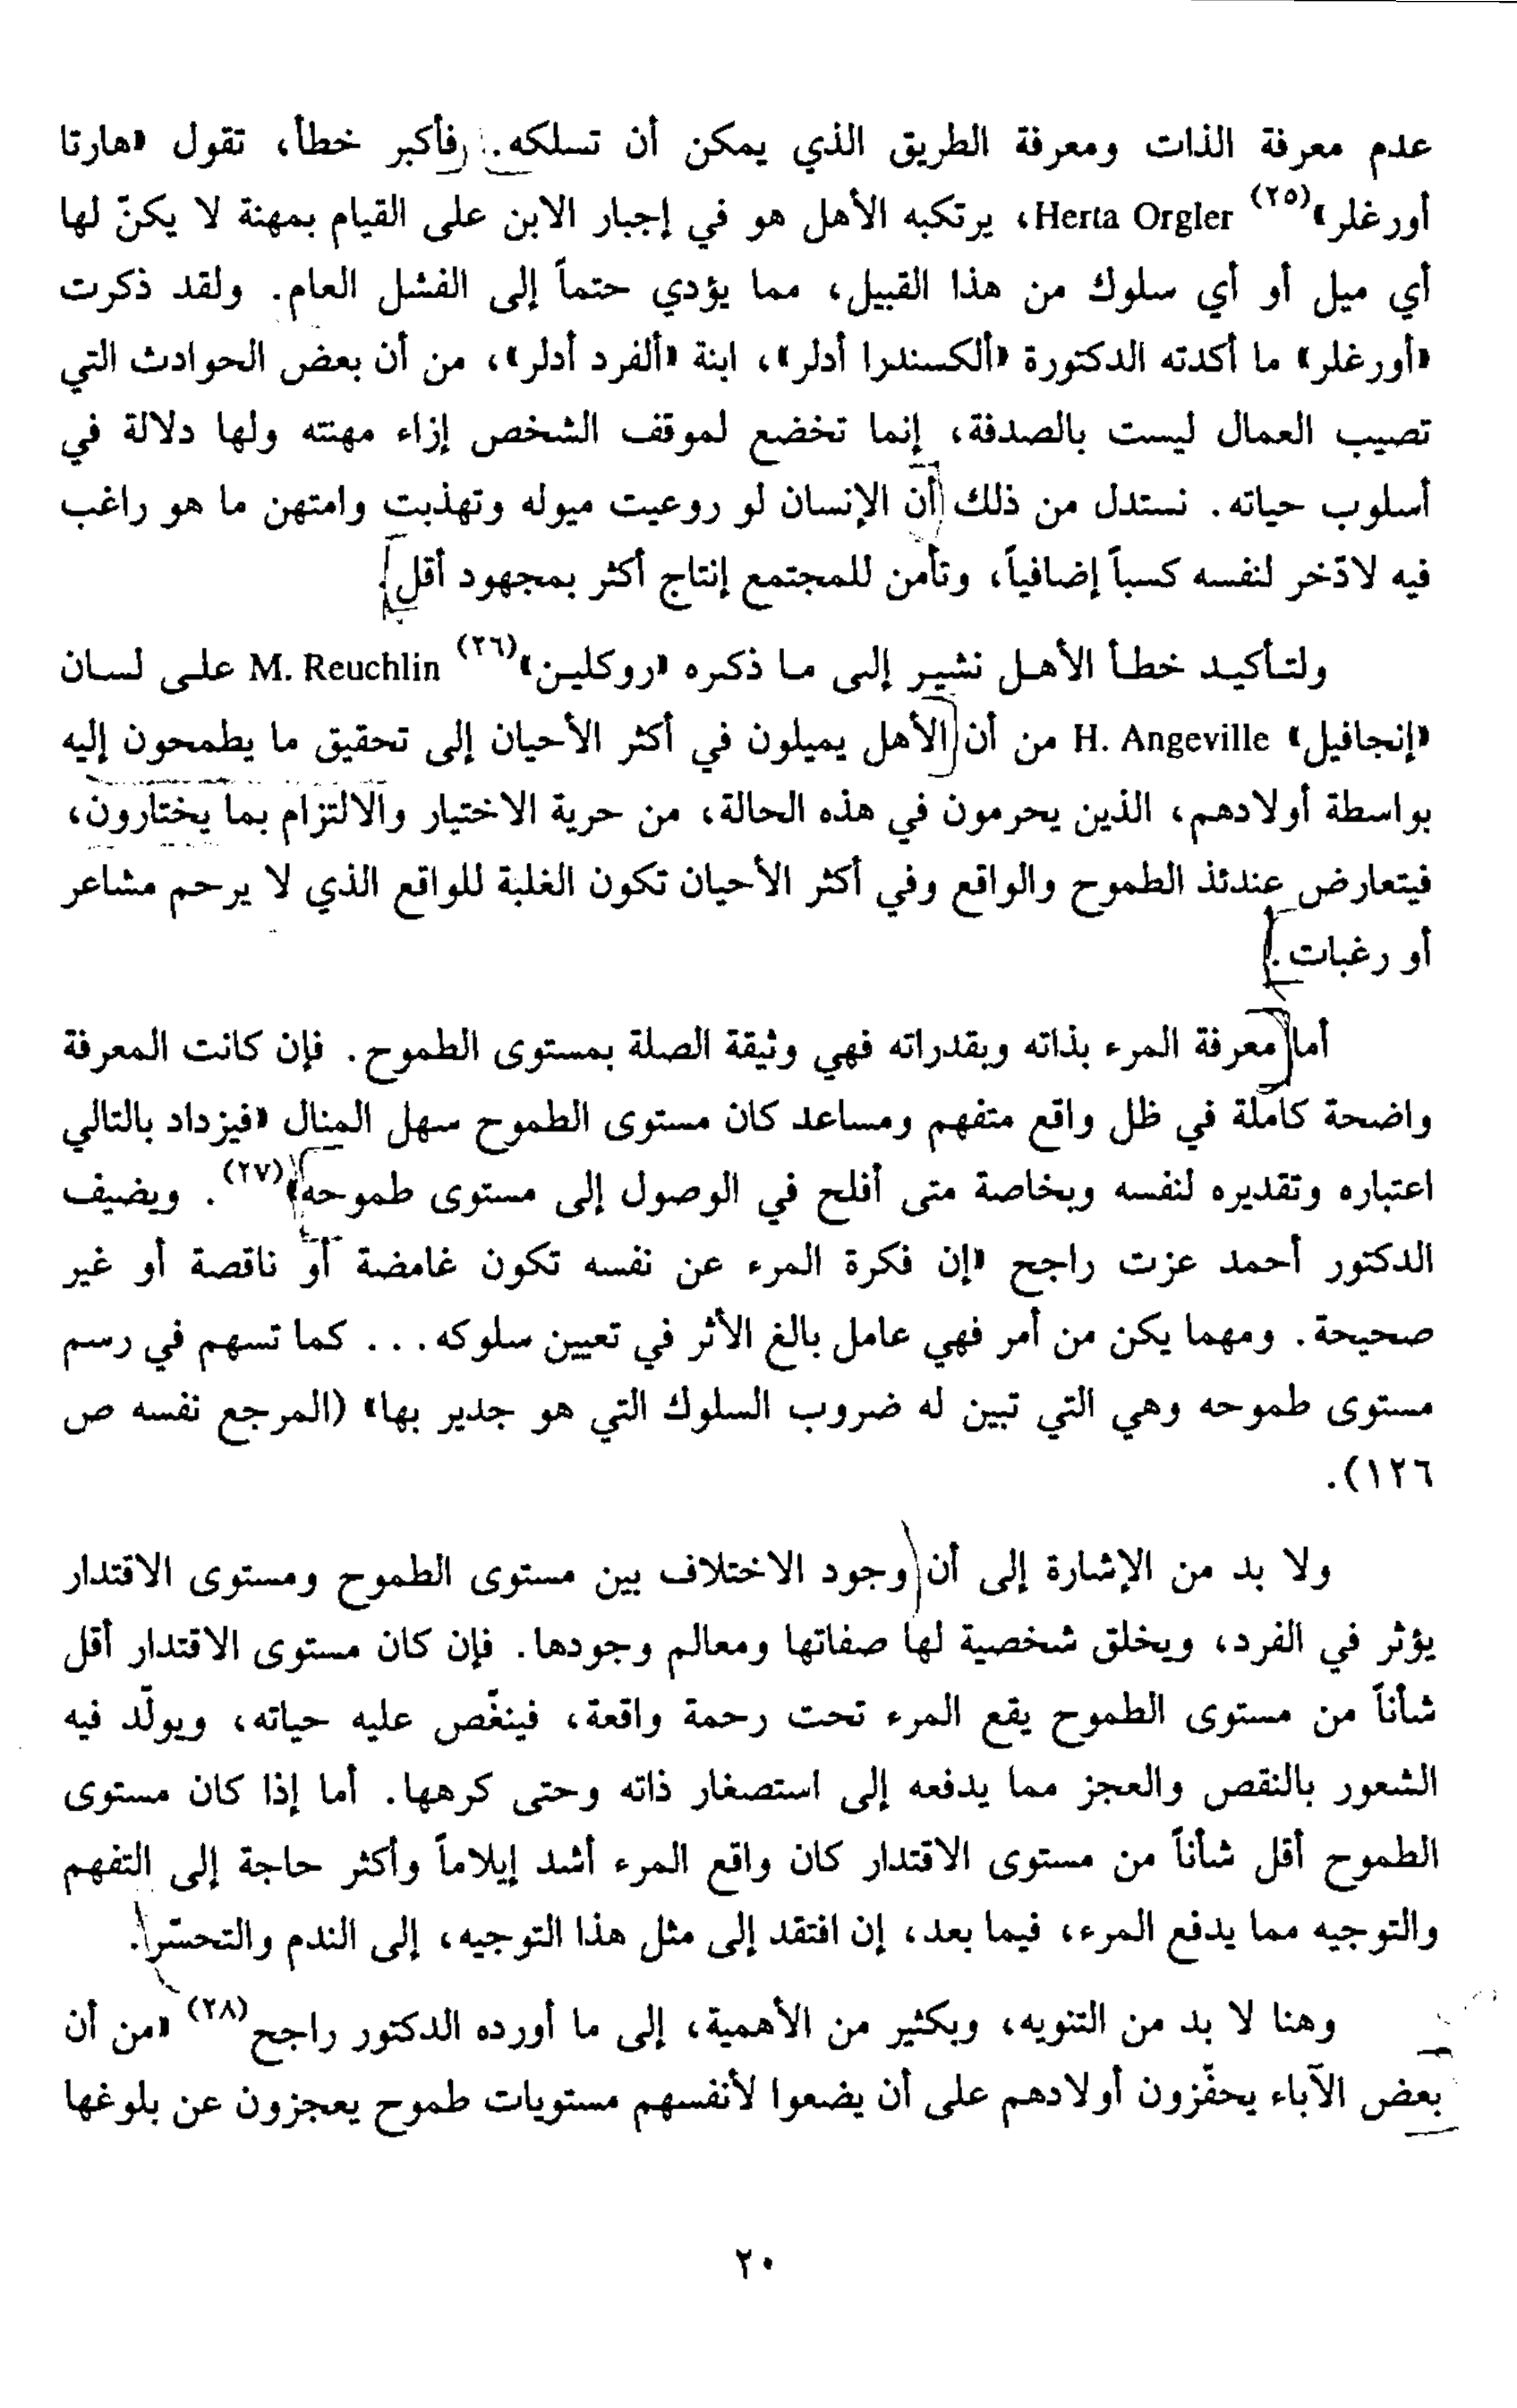 عدم معرفة الذات ومعرفة الطريق الذي يمكن أن تسلكه. فأكبر خطأ، تقول «هارتا
أورغلر»(٢٥) Herta Orgler، يرتكبه الأهل هو في إجبار الابن على القيام بمهنة لا يكنّ لها
أي ميل أو أي سلوك من هذا القبيل، مما يؤدي حتماً إلى الفشل العام. ولقد ذكرت
«أورغلر» ما أكدته الدكتورة «ألكسندرا أدلر»، ابنة «ألفرد أدلر»، من أن بعض الحوادث التي
تصيب العمال ليست بالصدفة، إنما تخضع لموقف الشخص إزاء مهنته ولها دلالة في
أسلوب حياته. نستدل من ذلك أن الإنسان لو روعيت ميوله وتهذبت وامتهن ما هو راغب
فيه لادّخر لنفسه كسباً إضافياً، وتأمن للمجتمع إنتاج أكثر بمجهود أقل.
ولتأكيد خطأ الأهل نشير إلى ما ذكره «روكلين»(٢٦) M. Reuchlin على لسان
«إنجافيل» H. Angeville من أن الأهل يميلون في أكثر الأحيان إلى تحقيق ما يطمحون إليه
بواسطة أولادهم، الذين يحرمون في هذه الحالة، من حرية الاختيار والالتزام بما يختارون،
فيتعارض عندئذ الطموح والواقع وفي أكثر الأحيان تكون الغلبة للواقع الذي لا يرحم مشاعر
أو رغبات.
أما معرفة المرء بذاته وبقدراته فهي وثيقة الصلة بمستوى الطموح. فإن كانت المعرفة
واضحة كاملة في ظل واقع متفهم ومساعد كان مستوى الطموح سهل المنال «فيزداد بالتالي
اعتباره وتقديره لنفسه وبخاصة متى أفلح في الوصول إلى مستوى طموحه»(٢٧). ويضيف
الدكتور أحمد عزت راجح «إن فكرة المرء عن نفسه تكون غامضة أو ناقصة أو غير
صحيحة. ومهما يكن من أمر فهي عامل بالغ الأثر في تعيين سلوكه... كما تسهم في رسم
مستوى طموحه وهي التي تبين له ضروب السلوك التي هو جدير بها» (المرجع نفسه ص
١٢٦).
ولا بد من الإشارة إلى أن وجود الاختلاف بين مستوى الطموح ومستوى الاقتدار
يؤثر في الفرد، ويخلق شخصية لها صفاتها ومعالم وجودها. فإن كان مستوى الاقتدار أقل
شأناً من مستوى الطموح يقع المرء تحت رحمة واقعة، فينغّص عليه حياته، ويولّد فيه
الشعور بالنقص والعجز مما يدفعه إلى استصغار ذاته وحتى كرهها. أما إذا كان مستوى
الطموح أقل شأناً من مستوى الاقتدار كان واقع المرء أشد إيلاماً وأكثر حاجة إلى التفهم
والتوجيه مما يدفع المرء، فيما بعد، إن افتقد إلى مثل هذا التوجيه، إلى الندم والتحسّر.
وهنا لا بد من التنويه، وبكثير من الأهمية، إلى ما أورده الدكتور راجح(٢٨) «من أن
بعض الآباء يحفّزون أولادهم على أن يضعوا لأنفسهم مستويات طموح يعجزون عن بلوغها
٢٠